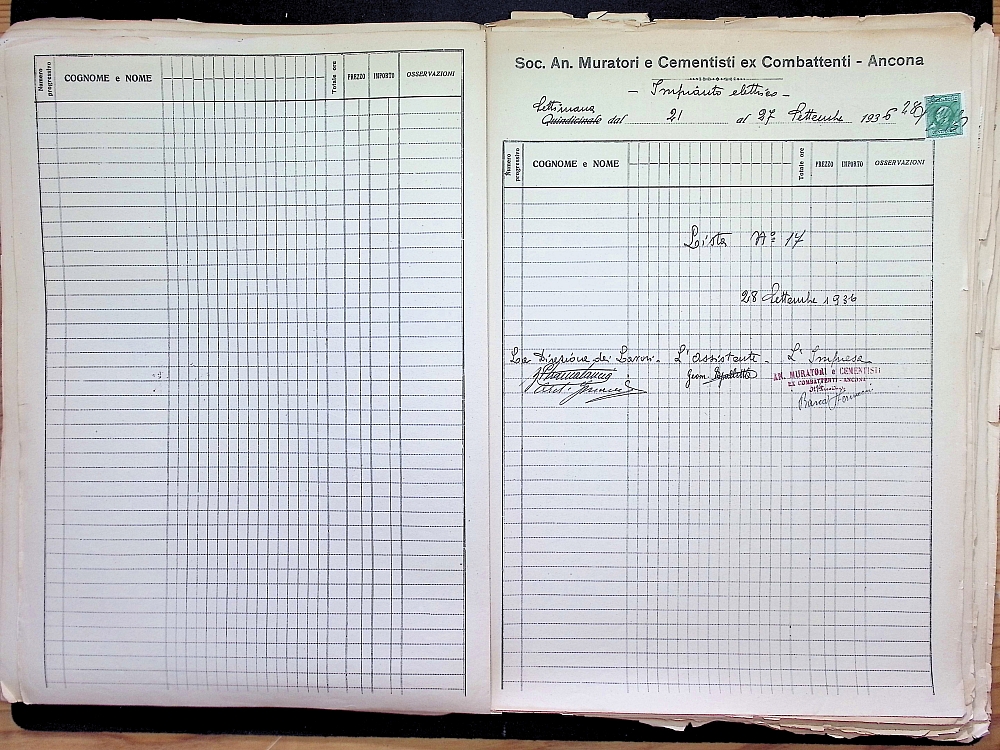 Numero progressivo COGNOME e NOME Totale ore PREZZO IMPORTO OSSERVAZIONI
Soc. An. Muratori e Cementisti ex Combattenti - Ancona
- Impianto elettrico -
Settimana
Quindicinale dal 21 al 27 Settembre 1936
Numero progressivo COGNOME e NOME Totale ore PREZZO IMPORTO OSSERVAZIONI
Lista N° 17
28 Settembre 1936
La Direzione dei Lavori - L'assistente - L'Impresa
Geom.
AN. MURATORI e CEMENTISTI
EX COMBATTENTI - ANCONA